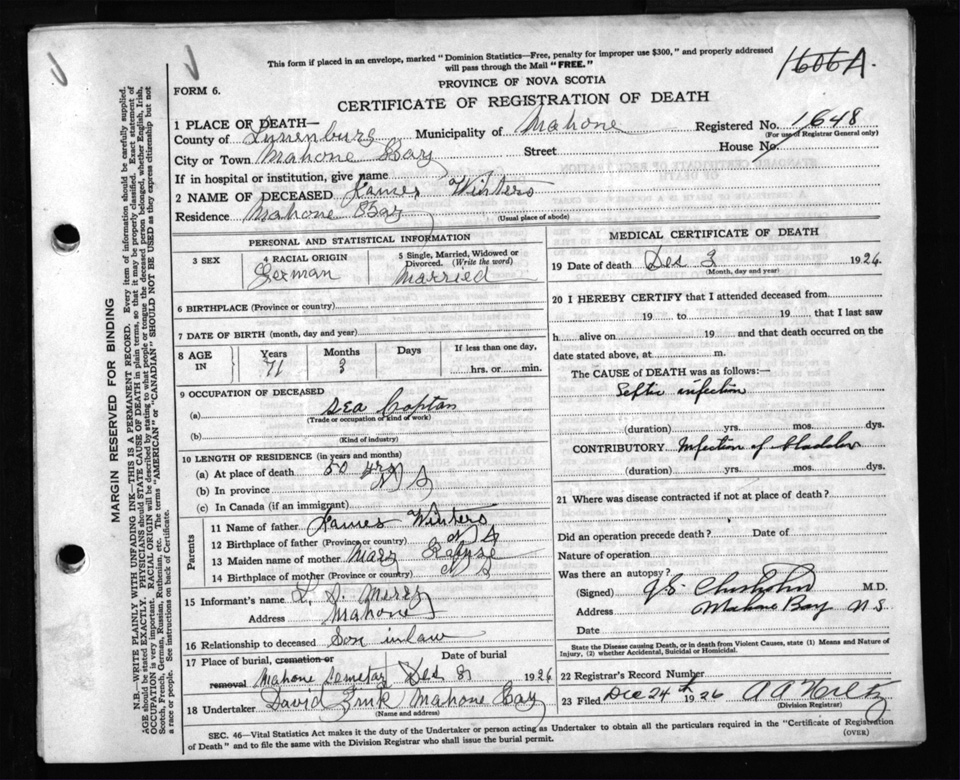 This form if placed in an envelope, marked "Dominion Statistics—Free, penalty for improper use $300," and properly addressed
will pass through the Mail "FREE."
1606A.
FORM 6.
PROVINCE OF NOVA SCOTIA
CERTIFICATE OF REGISTRATION OF DEATH
1 PLACE OF DEATH—
County of Lunenburg Municipality of Mahone Registered No. 1648
(For use of Registrar General only)
City or Town Mahone Bay Street House No.
If in hospital or institution, give name
2 NAME OF DECEASED James Winters
Residence Mahone Bay
(Usual place of abode)
PERSONAL AND STATISTICAL INFORMATION
3 SEX
4 RACIAL ORIGIN
German
5 Single, Married, Widowed or
Divorced. (Write the word)
Married
6 BIRTHPLACE (Province or country)
7 DATE OF BIRTH (month, day and year)
8 AGE
IN
Years
71
Months
3
Days
If less than one day,
hrs. or min.
9 OCCUPATION OF DECEASED
(a) Sea Captan
(Trade or occupation or kind of work)
(b)
(Kind of industry)
10 LENGTH OF RESIDENCE (in years and months)
(a) At place of death 50 yrs
(b) In province N S
(c) In Canada (if an immigrant)
Parents
11 Name of father James Winters
12 Birthplace of father (Province or country) N S
13 Maiden name of mother Mary
14 Birthplace of mother (Province or country) N S
15 Informant's name
Address Mahone
16 Relationship to deceased Son inlaw
17 Place of burial, cremation or
removal Mahone Cemetary
Date of burial
Des 8 1926
18 Undertaker David Zink Mahone Bay
(Name and address)
MEDICAL CERTIFICATE OF DEATH
19 Date of death Des 3 1926
(Month, day and year)
20 I HEREBY CERTIFY that I attended deceased from
19 to 19 that I last saw
h alive on 19 and that death occurred on the
date stated above, at m.
The CAUSE of DEATH was as follows:—
Septic infection
(duration) yrs. mos. dys.
CONTRIBUTORY Infection of bladder
(duration) yrs. mos. dys.
21 Where was disease contracted if not at place of death?
Did an operation precede death? Date of
Nature of operation
Was there an autopsy?
(Signed) M.D.
Address Mahone Bay N.S.
Date
State the Disease causing Death, or in death from Violent Causes, state (1) Means and Nature of
Injury, (2) whether Accidental, Suicidal or Homicidal.
22 Registrar's Record Number
23 Filed Dec 24th 1926
(Division Registrar)
SEC. 46—Vital Statistics Act makes it the duty of the Undertaker or person acting as Undertaker to obtain all the particulars required in the "Certificate of Registration
of Death" and to file the same with the Division Registrar who shall issue the burial permit.
(OVER)
MARGIN RESERVED FOR BINDING
N.B.—WRITE PLAINLY WITH UNFADING INK—THIS IS A PERMANENT RECORD. Every item of information should be carefully supplied.
AGE should be stated EXACTLY. PHYSICIANS should STATE CAUSE OF DEATH in plain terms, so that it may be properly classified. Exact statement of
OCCUPATION is very important. RACIAL ORIGIN will be described by stating to what people or tongue the deceased person belonged, whether English, Irish,
Scotch, French, German, Russian, Ruthenian, etc. The terms "AMERICAN" or "CANADIAN" SHOULD NOT BE USED as they express citizenship but not
a race or people. See instructions on back of Certificate.